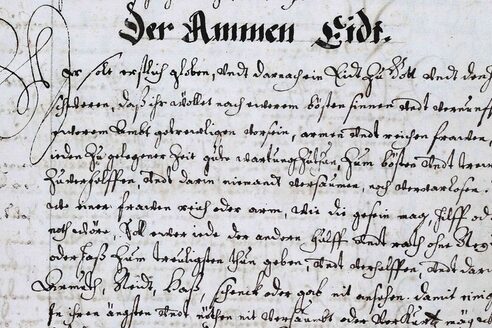 Der Ammen Eidt.
Ir solt erstlich globen, undt darnach ein Eidt zu Gott undt den
schweren, daß ihr wöllet nach ewerem besten sinnen undt vernunfft
ewerem Ambt getrewligen vorsein, armen undt reichen frawen,
ieden zu gelegener Zeit gute wartung zum besten undt
zuverhelffen, undt darin niemandt versäumen, noch verwarlosen.
wo einer frawen reich oder arm, wie die gesein mag, hilff
noth wäre, soll ewer iede der andern hülff undt rath ohne
oder haß zum treuligsten thun geben, undt verhelffen, undt
Armuth, Neidt, Haß, schenck oder gab nit ansehen, damit
in ihren ängsten undt nöthen nit versäumbt oder